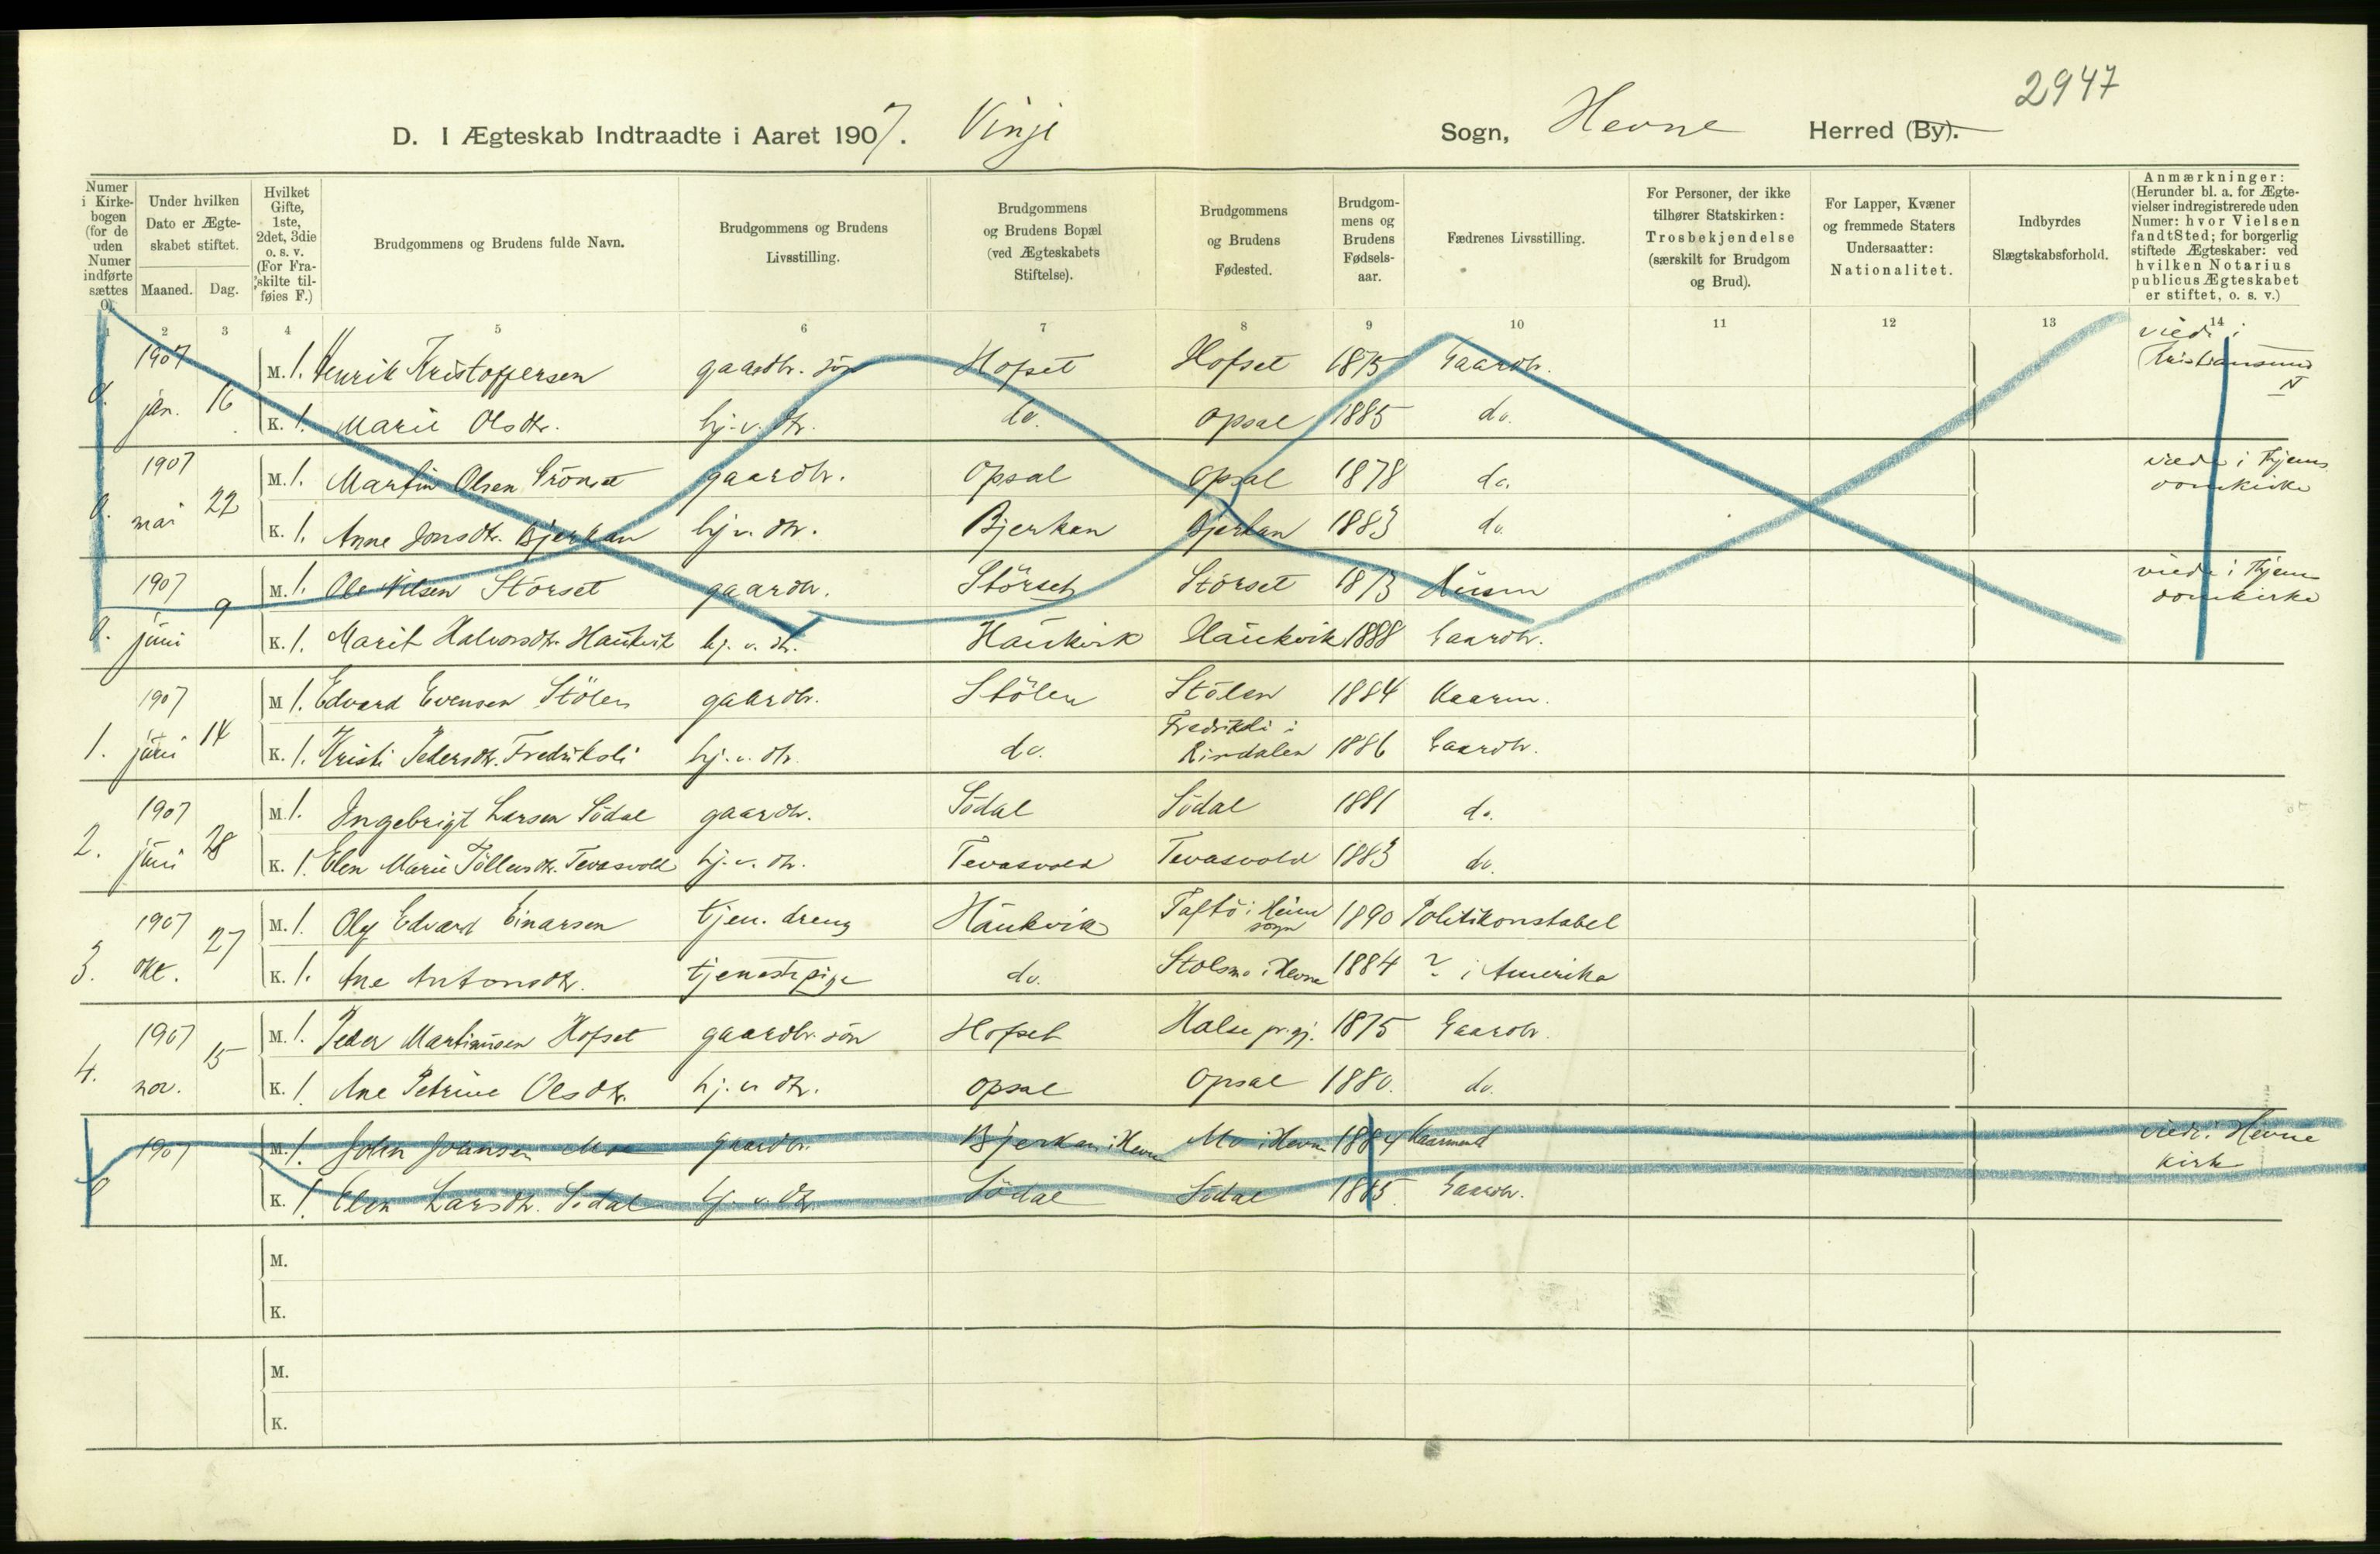 2947
D. I Ægteskab Indtraadte i Aaret 1907. Vinje Sogn, Hevne Herred (By).
Numer i Kirkebogen (for de uden Numer indførte sættes 0)
Under hvilken Dato er Ægteskabet stiftet.
Maaned. Dag.
Hvilket Gifte, 1ste, 2det, 3die o. s. v. (For Fraskilte tilføies F.)
Brudgommens og Brudens fulde Navn.
Brudgommens og Brudens Livsstilling.
Brudgommens og Brudens Bopæl (ved Ægteskabets Stiftelse).
Brudgommens og Brudens Fødested.
Brudgommens og Brudens Fødselsaar.
Fædrenes Livsstilling.
For Personer, der ikke tilhører Statskirken: Trosbekjendelse (særskilt for Brudgom og Brud).
For Lapper, Kvæner og fremmede Staters Undersaatter: Nationalitet.
Indbyrdes Slægtskabsforhold.
Anmærkninger: (Herunder bl. a. for Ægtevielser indregistrerede uden Numer: hvor Vielsen fandt Sted; for borgerlig stiftede Ægteskaber: ved hvilken Notarius publicus Ægteskabet er stiftet, o. s. v.)
1 2 3 4 5 6 7 8 9 10 11 12 13 14
0. 1907 jan. 16 M. 1. Henrik Kristoffersen gaardbr. søn Hofset Hofset 1875 Gaardbr. viede i Kristiansund N
K. 1. Marie Olsdtr. hj. v. dtr. do. Opsal 1885 do.
0. 1907 mai 22 M. 1. Martin Olsen Grönset gaardbr. Opsal Opsal 1878 do. viede i Thjems domkirke
K. 1. Anne Jonsdtr. Bjerkan hj. v. dtr. Bjerkan Bjerkan 1883 do.
0. 1907 juni 9 M. 1. Ole Nilsen Störset gaardbr. Störset Störset 1873 Husm viede i Thjems domkirke
K. 1. Marit Halvorsdtr. Haukvik hj. v. dtr. Haukvik Haukvik 1888 Gaardbr.
1. 1907 juni 14 M. 1. Edvard Evensen Stölen gaardbr. Stölen Stölen 1884 Kaarm.
K. 1. Kristi Pedersdtr. Fredriksli hj. v. dtr. do. Fredriksli i Rindalen 1886 Gaardbr.
2. 1907 juni 28 M. 1. Ingebrigt Larsen Södal gaardbr. Södal Södal 1881 do.
K. 1. Elen Marie Töllevsdtr. Tevasvold hj. v. dtr. Tevasvold Tevasvold 1883 do.
3. 1907 okt. 27 M. 1. Oluf Edvard Einarsen tjen. dreng Haukvik Taftö i Heim sogn 1890 Politikonstabel
K. 1. Ane Antonsdtr. tjenestepige do. Stolsmo i Hevne 1884 ? i Amerika
4. 1907 nov. 15 M. 1. Peder Martinusen Hofset gaardbr. sön Hofset Halse pr.gj. 1875 Gaardbr.
K. 1. Ane Petrine Olsdtr. hj. v. dtr. Opsal Opsal 1880. do.
0 1907 M. 1. John Johansen Moe gaardbr. Bjerkan i Hevne Mo i Hevne 1884 Kaarmand viede i Hevne kirke
K. 1. Elen Larsdtr. Södal hj. v. dtr. Södal Södal 1885. Gaardbr.
M.
K.
M.
K.